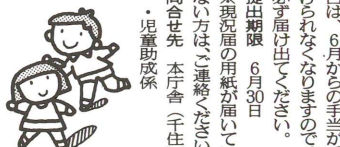 は、6月からの手当が
けられなくなりますので
ず届け出てください。
提出期限 6月30日
現況届の用紙が届いて
ない方は、ご連絡ください
問合せ先 本庁舎(千住
・児童助成係